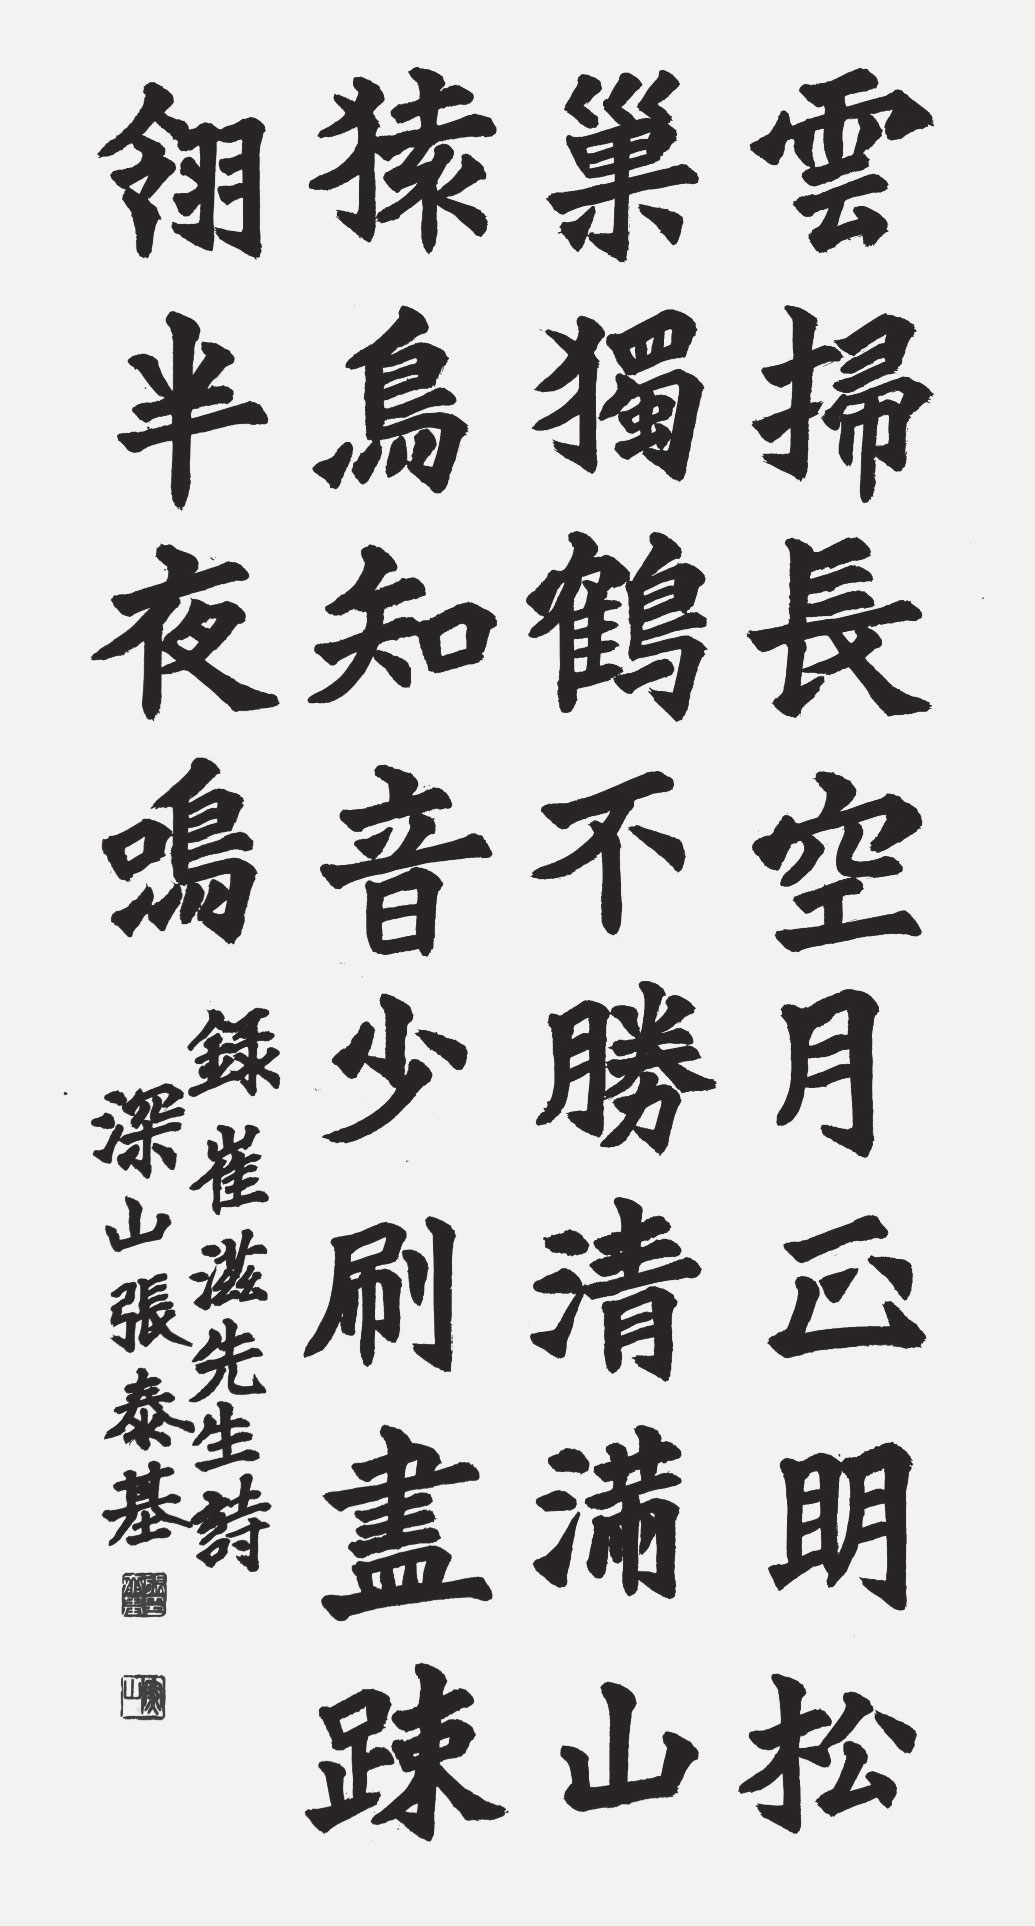 雲掃長空月正明松
巢獨鶴不勝清滿山
猿鳥知音少刷盡踈
翎半夜鳴
錄崔滋先生詩
深山張泰基